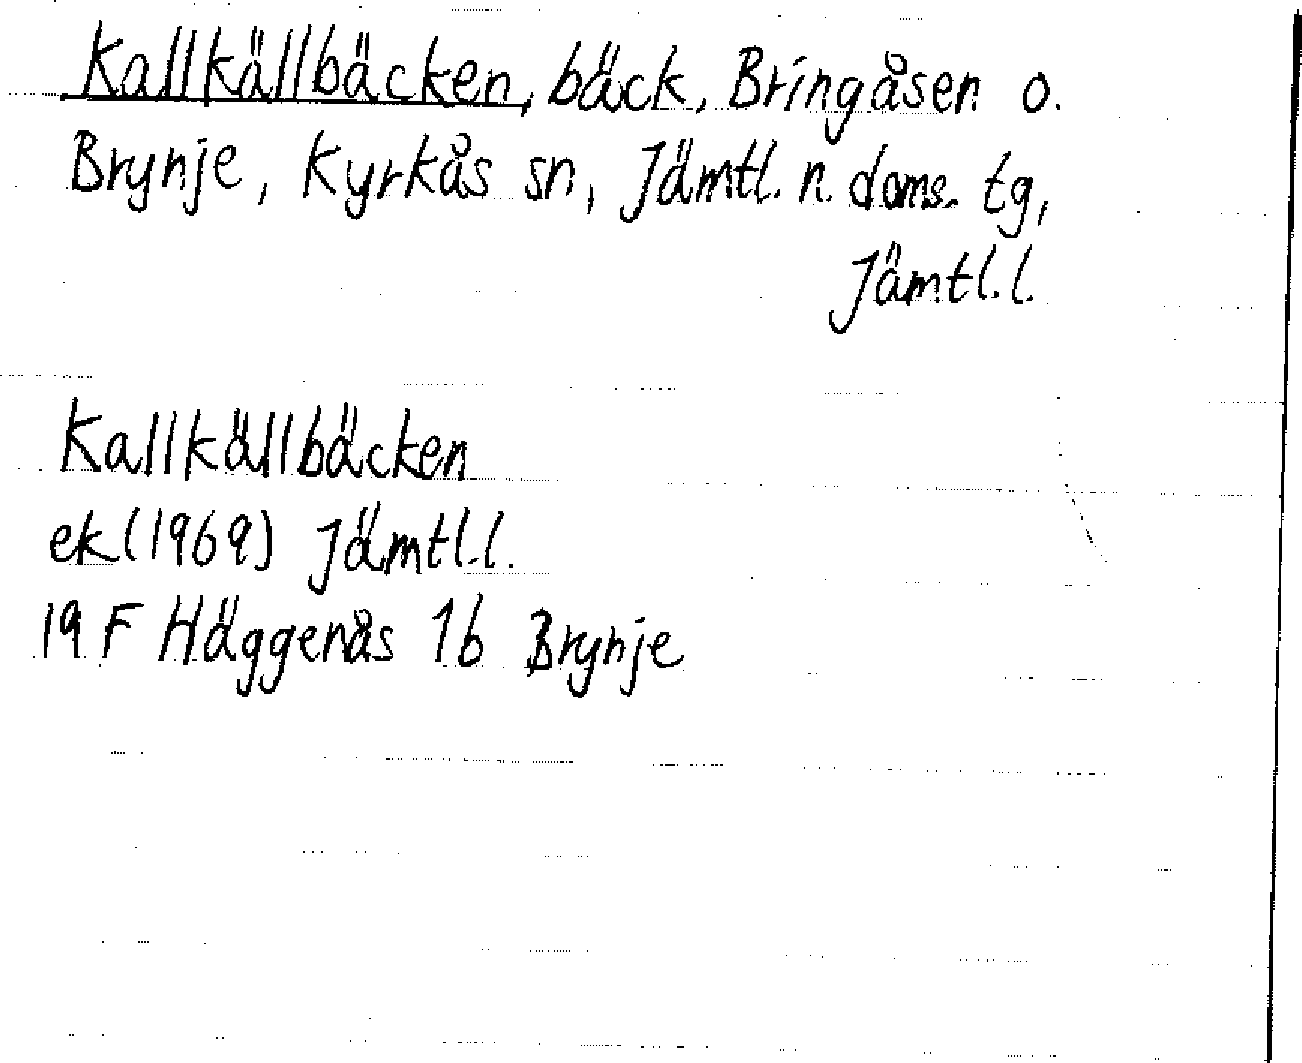 Kallkällbäcken, bäck, Bringåsen o.
Brynje, Kyrkås sn, Jämtl. n. doms. tg,
Jämtl.l.
Kallkällbäcken
ek(1969) Jämtl.l.
19 F Häggenås 1b Brynje